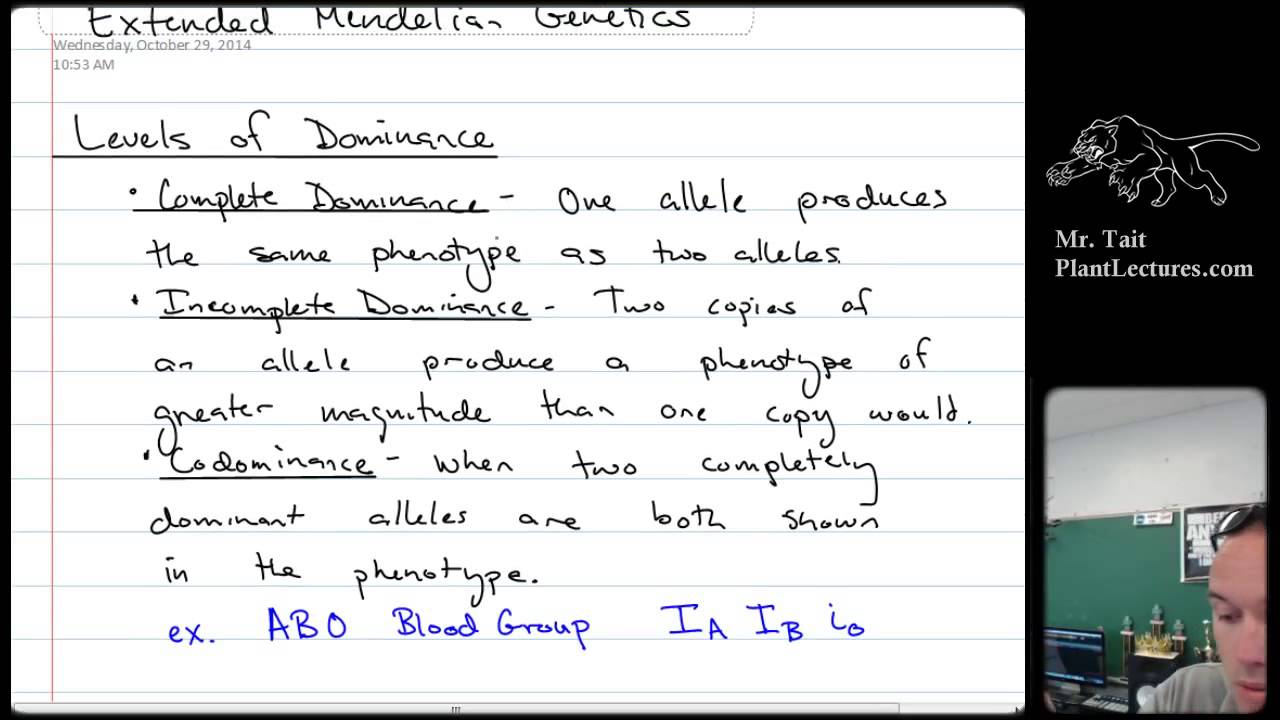 Extended Mendelian Genetics
Wednesday, October 29, 2014
10:53 AM
Levels of Dominance
• Complete Dominance - One allele produces
the same phenotype as two alleles.
• Incomplete Dominance - Two copies of
an allele produce a phenotype of
greater magnitude than one copy would.
• Codominance - when two completely
dominant alleles are both shown
in the phenotype.
ex. ABO Blood Group IA IB io
Mr. Tait
PlantLectures.com